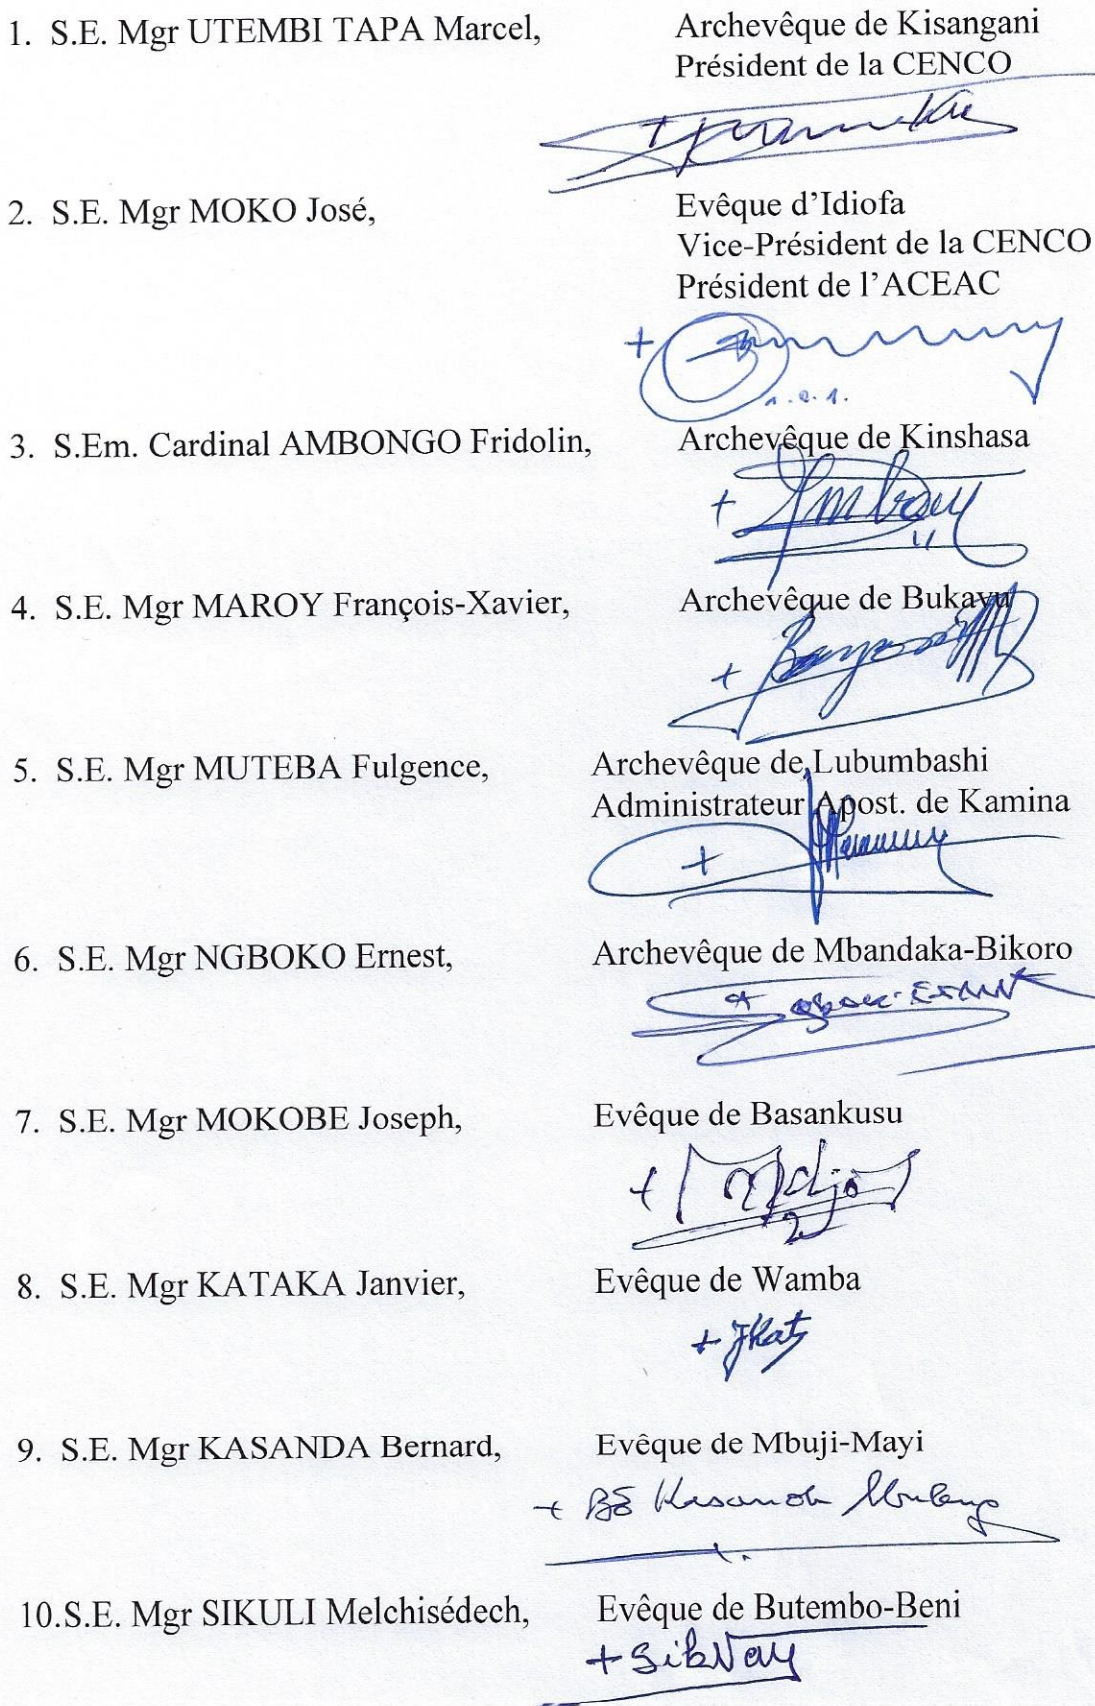 1. S.E. Mgr UTEMBI TAPA Marcel, Archevêque de Kisangani
Président de la CENCO
2. S.E. Mgr MOKO José, Evêque d'Idiofa
Vice-Président de la CENCO
Président de l'ACEAC
3. S.Em. Cardinal AMBONGO Fridolin, Archevêque de Kinshasa
4. S.E. Mgr MAROY François-Xavier, Archevêque de Bukavu
5. S.E. Mgr MUTEBA Fulgence, Archevêque de Lubumbashi
Administrateur Apost. de Kamina
6. S.E. Mgr NGBOKO Ernest, Archevêque de Mbandaka-Bikoro
7. S.E. Mgr MOKOBE Joseph, Evêque de Basankusu
8. S.E. Mgr KATAKA Janvier, Evêque de Wamba
9. S.E. Mgr KASANDA Bernard, Evêque de Mbuji-Mayi
10.S.E. Mgr SIKULI Melchisédech, Evêque de Butembo-Beni